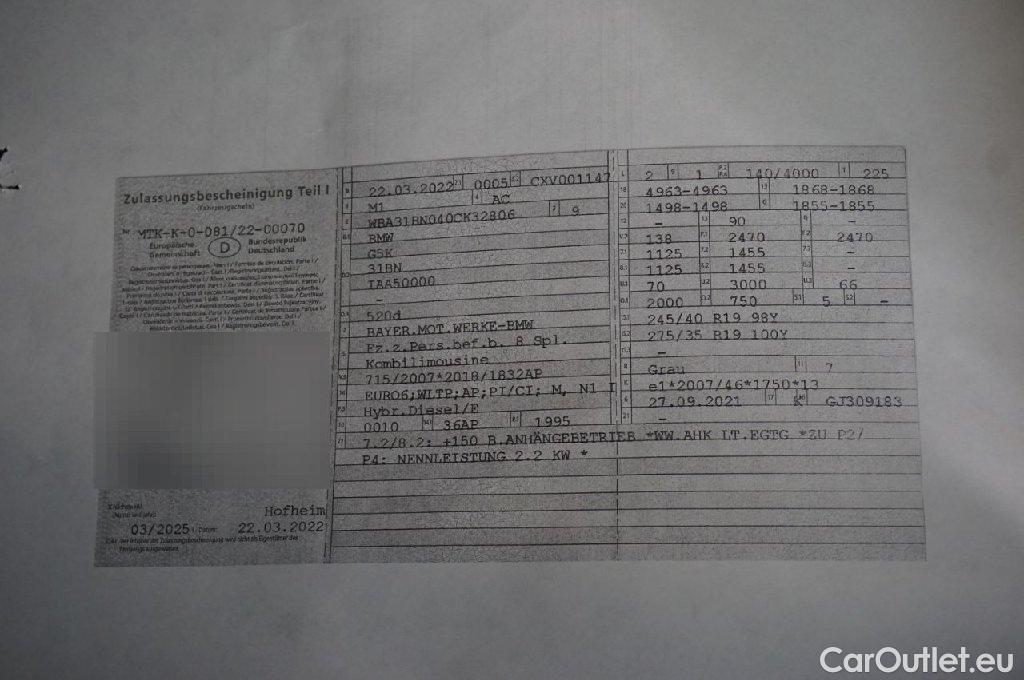 Zulassungsbescheinigung Teil I
(Fahrzeugschein)
Nr. MTK-K-0-081/22-00070
Europäische Gemeinschaft D Bundesrepublik Deutschland
Hofheim
03/2025 Datum: 22.03.2022
B 22.03.2022 0005 CXV001147
J M1 4 AC
E WBA31BN040CK32806 3 9
D.1 BMW
G5K
31BN
D.2 IAA50000
-
D.3 520d
2 BAYER.MOT.WERKE-BMW
5 Fz.z.Pers.bef.b. 8 Spl.
Kombilimousine
V.9 715/2007*2018/1832AP
14 EURO6;WLTP;AP;PI/CI; M, N1 I
P.3 Hybr.Diesel/E
10 0010 14.1 36AP P.1 1995
22 7.2/8.2: +150 B.ANHÄNGEBETRIEB *WW.AHK LT.EGTG *ZU P2/
P4: NENNLEISTUNG 2.2 KW *
L 2 9 1 140/4000 T 225
18 4963-4963 19 1868-1868
20 1498-1498 G 1855-1855
12 - 13 90 Q -
V.7 138 F.1 2470 F.2 2470
7.1 1125 7.2 1455 7.3 -
8.1 1125 8.2 1455 8.3 -
U.1 70 U.2 3000 U.3 66
O.1 2000 O.2 750 S.1 5 S.2 -
15.1 245/40 R19 98Y
15.2 275/35 R19 100Y
15.3 -
R Grau 11 7
K e1*2007/46*1750*13
6 27.09.2021 17 K 16 GJ309183
21 -
CarOutlet.eu